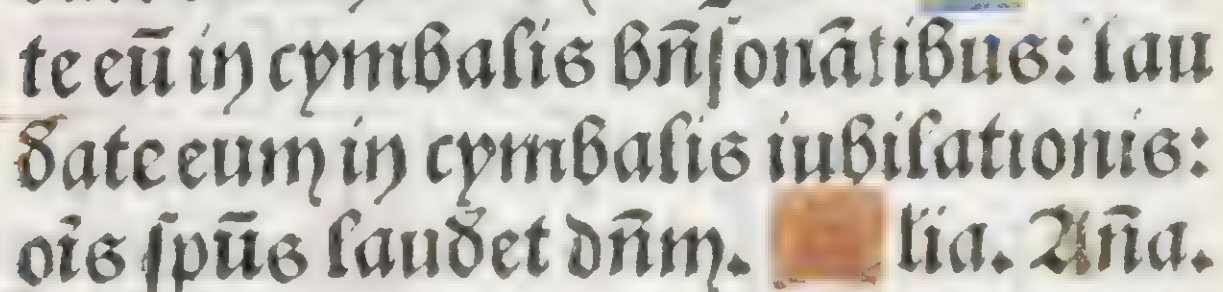 te eū in cymbalis bn̄ſonātibus: lau
date eum in cymbalis iubilationis:
oīs ſpūs laudet dn̄m. lia. An̄a.